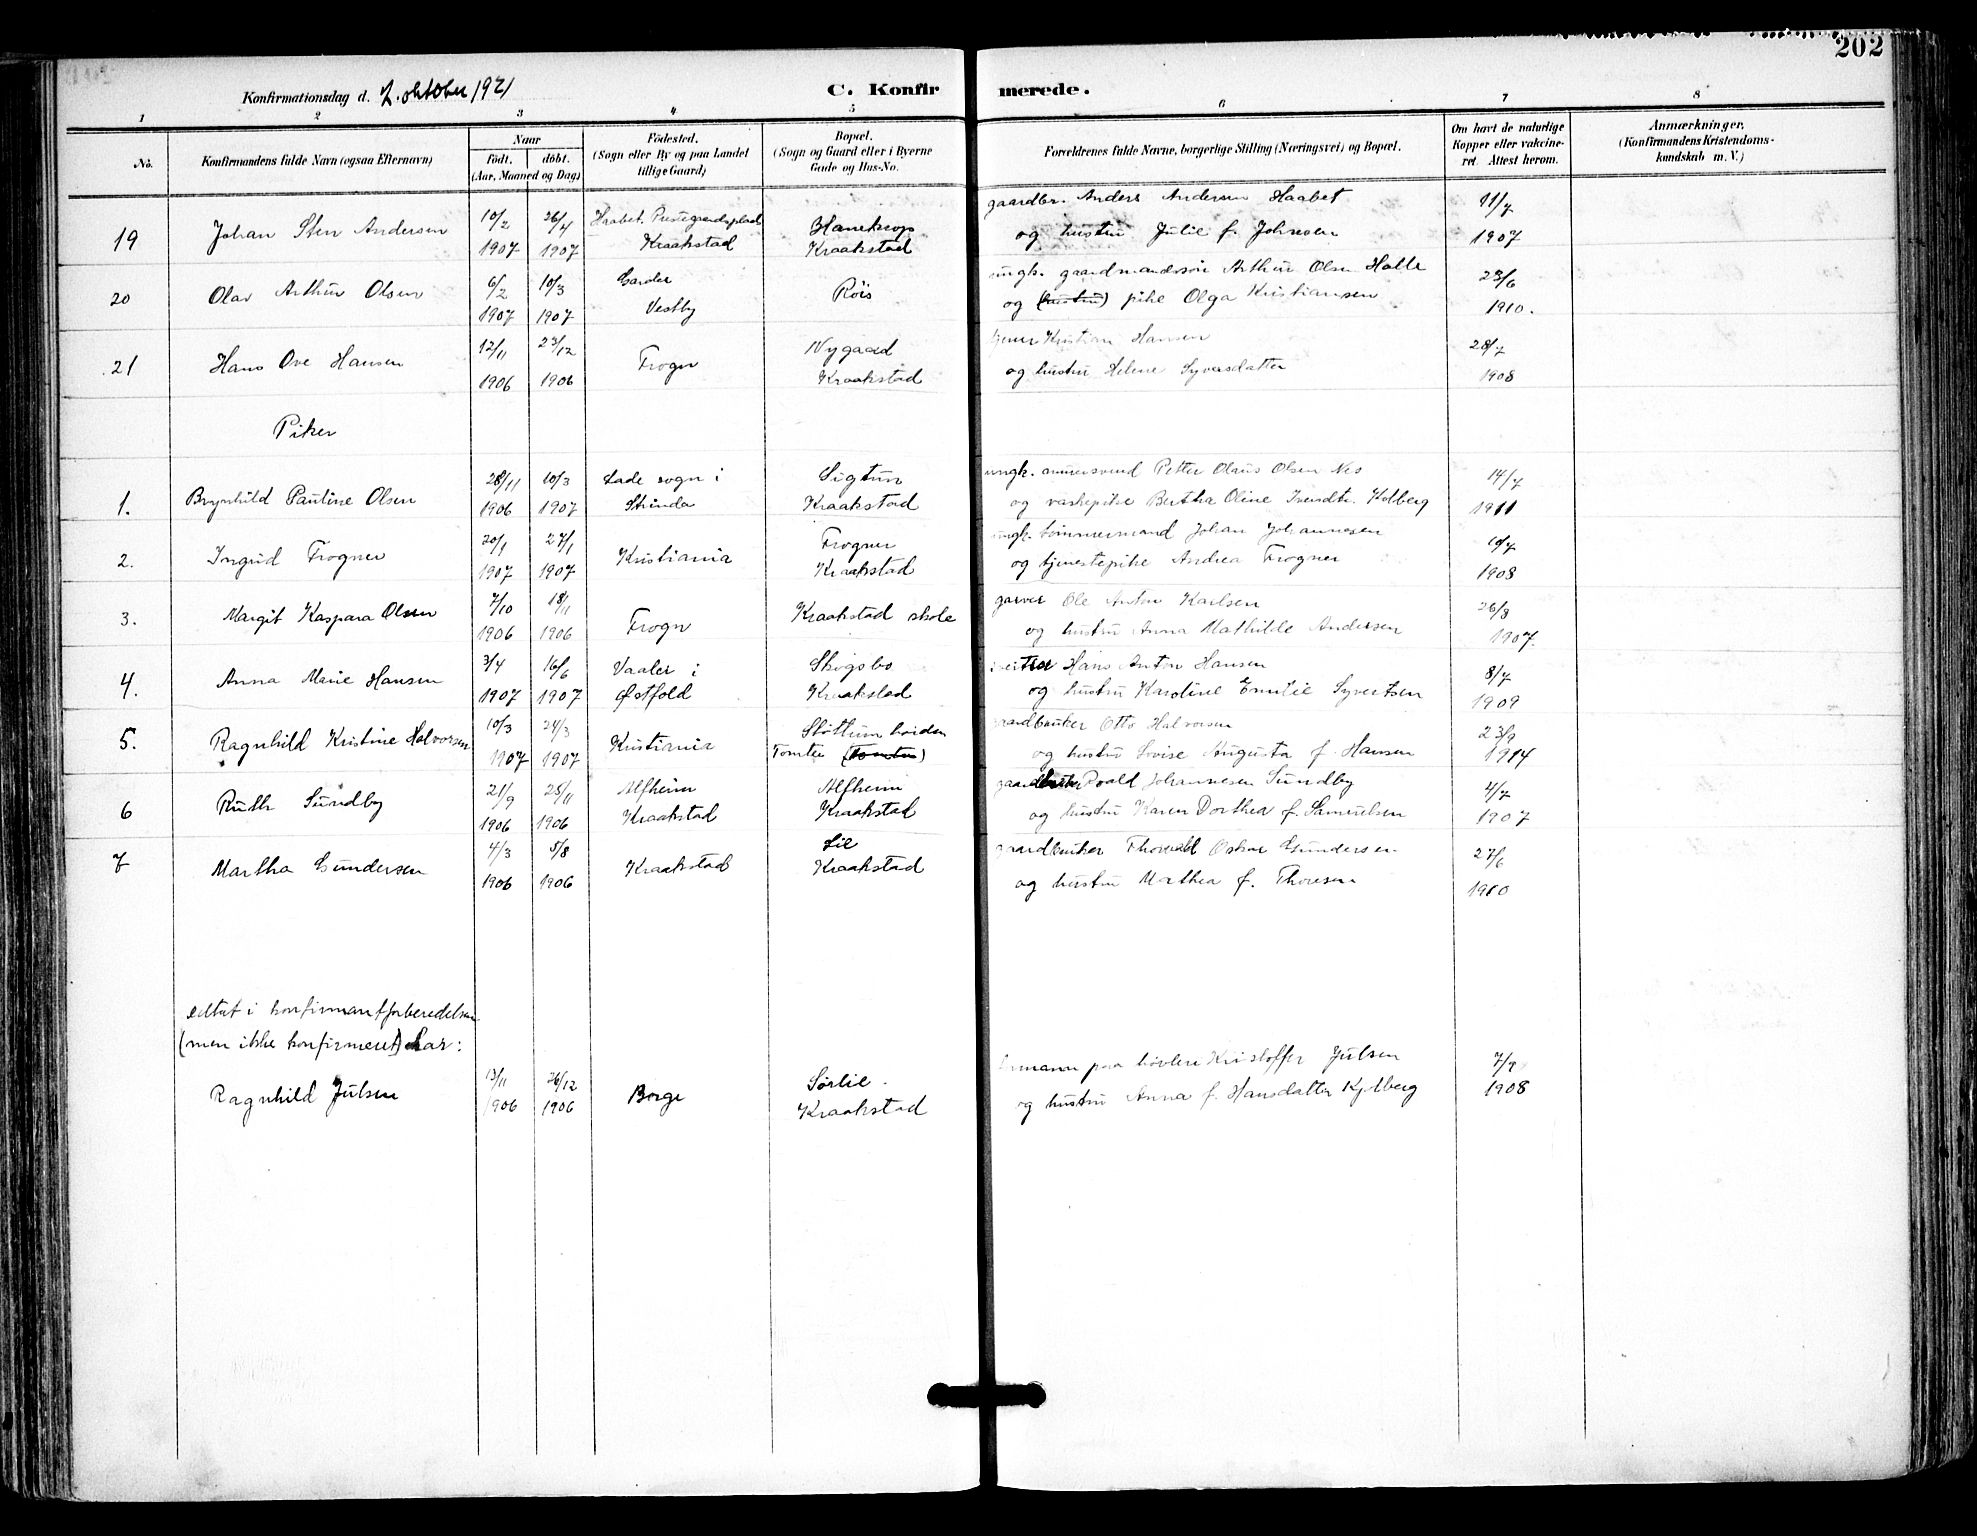 202
Konfirmationsdag d. 2. oktober 1921
C. Konfirmerede.
1 2 3 4 5 6 7 8
No.
Konfirmandens fulde Navn (ogsaa Efternavn)
Naar
födt. döbt.
(Aar, Maaned og Dag)
Födested.
(Sogn eller By og paa Landet
tillige Gaard)
Bopæl.
(Sogn og Gaard eller i Byerne
Gade og Hus-No.
Forældrenes fulde Navne, borgerlige Stilling (Næringsvei) og Bopæl.
Om havt de naturlige
Kopper eller vakcine-
ret. Attest herom.
Anmærkninger,
(Konfirmandens Kristendoms-
kundskab m. V.)
19 Johan Sten Andersen 10/2 1907 26/4 1907 Haabet. Kraakstad Hanekrop Kraakstad gaardbr. Anders Andersen Haabet
og hustru Julie f. Johnsen 11/7 1907
20 Olav Arthur Olsen 6/2 1907 10/3 1907 Garder Vestby Röis ungk. gaardmandssön Arthur Olsen Holle
og (hustru) pike Olga Kristiansen 23/6 1910.
21 Hans Ove Hansen 12/11 1906 23/12 1906 Frogn Nygaard Kraakstad Kristian Hansen
og hustru Helene Syversdatter 28/7 1908
Piker
1. Brynhild Pauline Olsen 28/11 1906 10/3 1907 Lade sogn i Strinda Sigtun Kraakstad ungk. murersvend Petter Olaus Olsen Nes
og vaskepike Bertha Oline Iversdtr. Kolberg 14/7 1911
2. Ingrid Frogner 20/1 1907 27/1 1907 Kristiania Frogner Kraakstad ungk. tömmermand Johan Johannesen
og tjenestepike Andrea Frogner 10/7 1908
3. Margit Kaspara Olsen 7/10 1906 18/11 1906 Frogn Kraakstad skole garver Ole Anton Karlsen
og hustru Anna Mathilde Andersen 26/3 1907.
4. Anna Marie Hansen 3/4 1907 16/6 1907 Vaaler i Østfold Skogsbo Kraakstad Hans Anton Hansen
og hustru Karoline Emilie Syvertsen 8/7 1909
5. Ragnhild Kristine Halvorsen 10/3 1907 24/3 1907 Kristiania Støttumhøiden Tomter (Tomter) gaardbruker Otto Halvorsen
og hustru Lovise Augusta f. Hansen 23/9 1914
6 Ruth Sundby 21/9 1906 25/11 1906 Alfheim Kraakstad Alfheim Kraakstad gaardbruker Roald Johannesen Sundby
og hustru Karen Dorthea f. Samuelsen 4/7 1907
7 Martha Gundersen 4/3 1906 5/8 1906 Kraakstad Lie Kraakstad gaardbruker Thorvald Oskar Gundersen
og hustru Mathea f. Thoresen 27/6 1910
deltat i konfirmantforberedelsen
(men ikke konfirmeret) har:
Ragnhild Julsen 13/11 1906 26/12 1906 Borge Sørlie. Kraakstad paa høvleri Kristoffer Julsen
og hustru Anna f. Hansdatter Kjelberg 7/9 1908